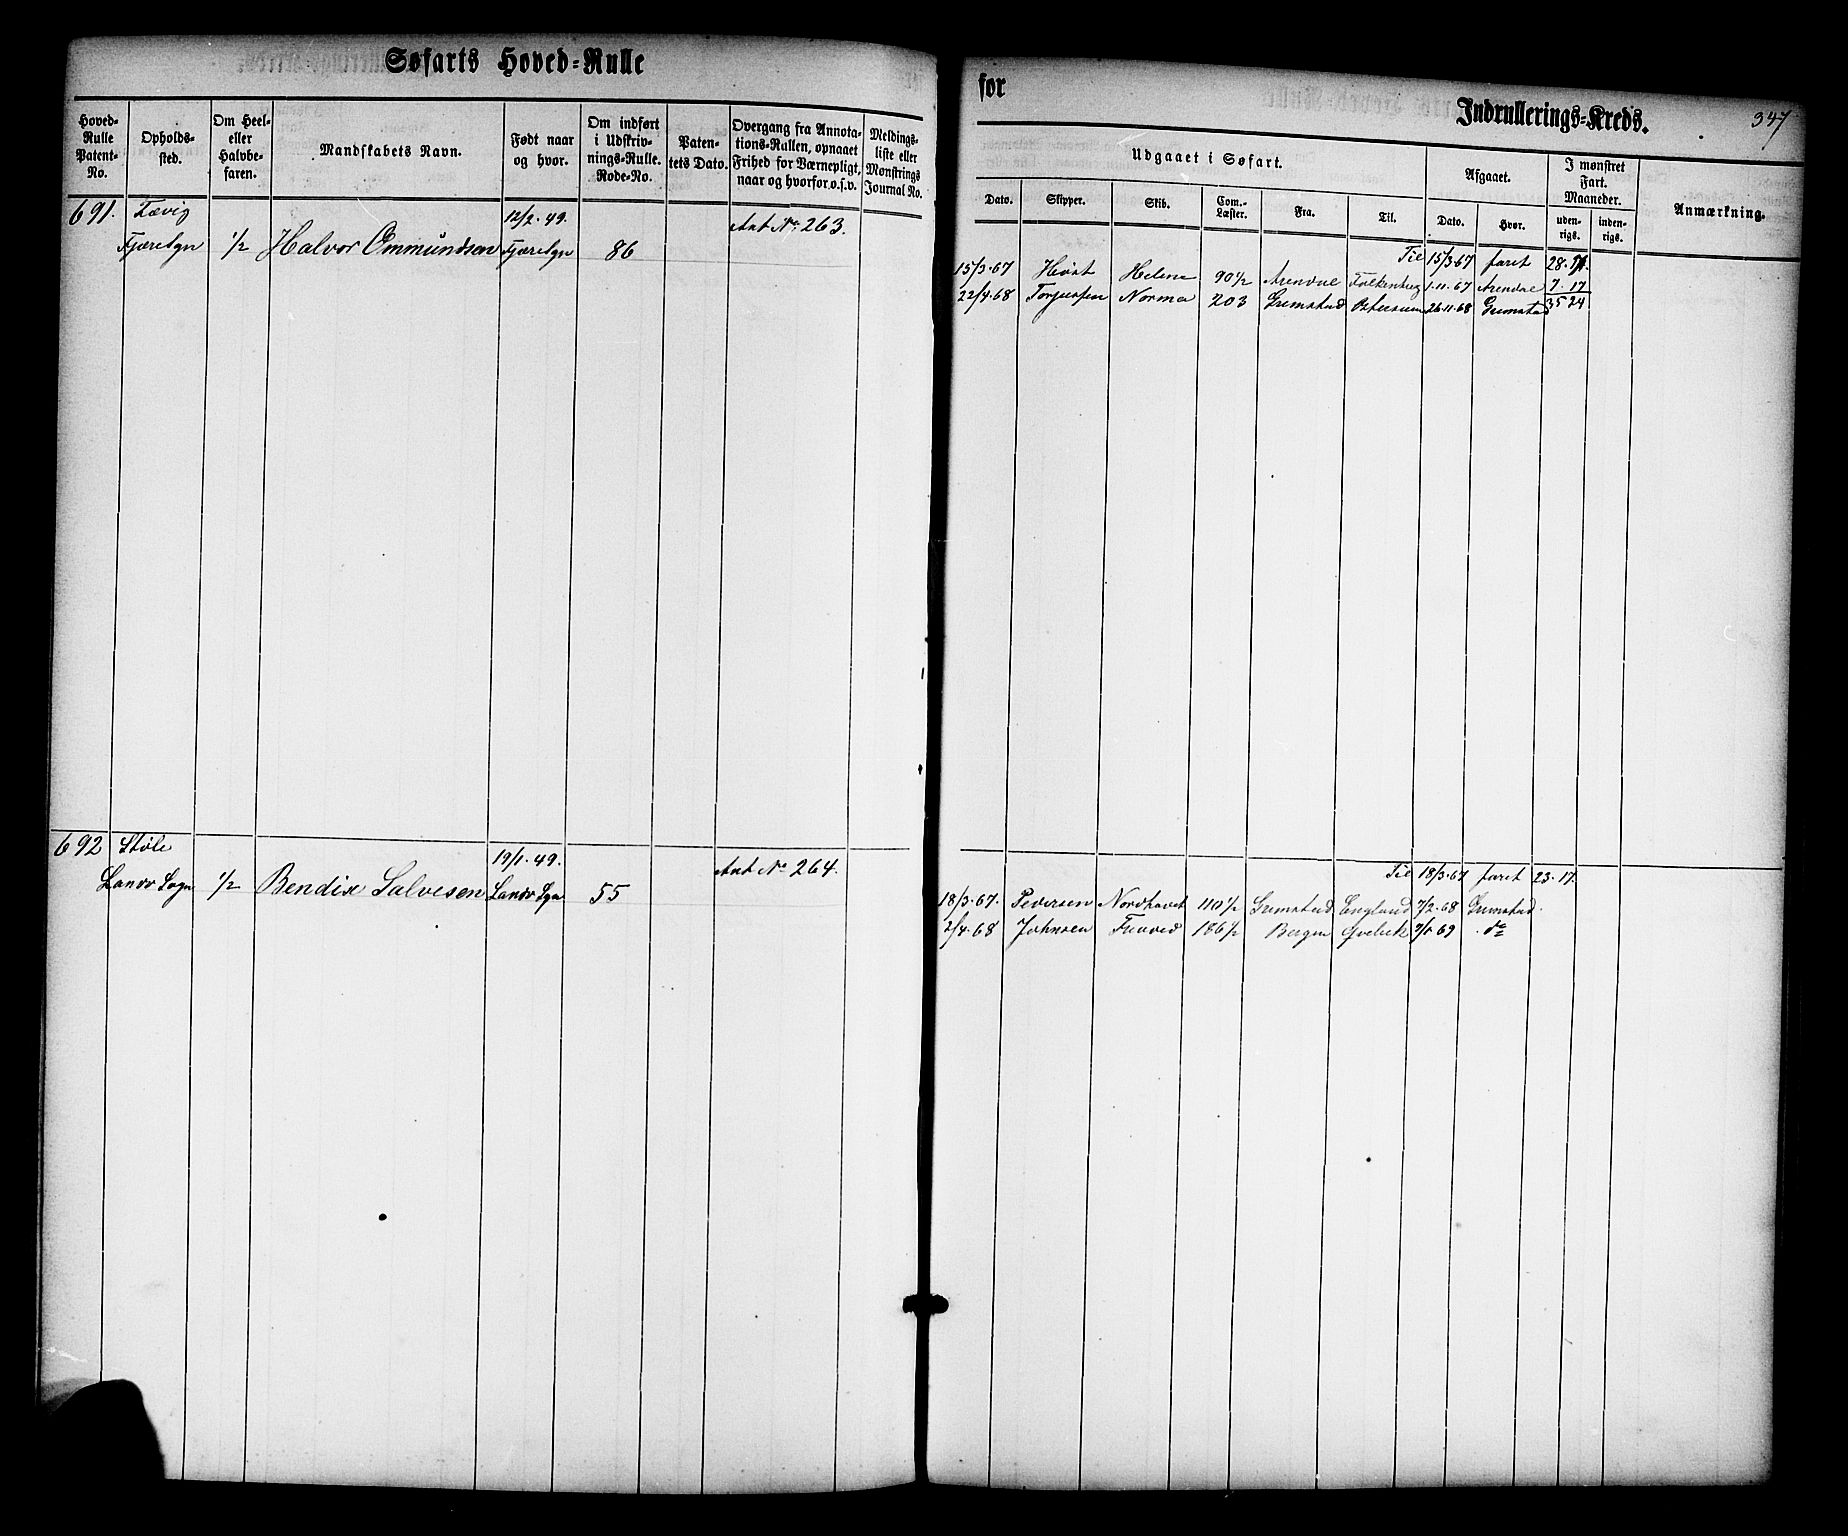 Søfarts Hoved-Rulle
for
Indrullerings-Kreds.
347
Hoved-Rulle Patent-No.
Opholds-sted.
Om Heel- eller Halvbe-faren.
Mandskabets Navn.
Født naar og hvor.
Om indført i Udskriv-nings-Rulle. Rode-No.
Paten-tets Dato.
Overgang fra Annota-tions-Rullen, opnaaet Frihed for Værnepligt, naar og hvorfor o.s.v.
Meldings-liste eller Mønstrings Journal No.
Udgaaet i Søfart.
Afgaaet.
I mønstret Fart. Maaneder.
Anmærkning.
Dato.
Skipper.
Skib.
Com.-Læster.
Fra.
Til.
Dato.
Hvor.
uden-rigs.
inden-rigs.
691. Fævig 12/2.49. Ant No. 263.
Fjæresgn 1/2 Halvor Ommundsen Fjæresgn 86
Til 15/3.67 faret 28.
15/3.67 Høst Helene 90 1/2 Arendal Falkenberg 1.11.67 Arendal 7.17
22/4.68 Torjussen Norma 203 Grimstad 26.11.68 Grimstad 35 24
692 Støle 19/1.49. Ant No. 264.
Landv Sogn 1/2 Bendix Salvesen Landv Sgn 55
Til 18/3.67 faret 23.17.
18/3.67. Pedersen Nordhavet 110 1/2 Grimstad England 7/2.68 Grimstad.
2/4.68 Johnsen 186 1/2 Bergen do